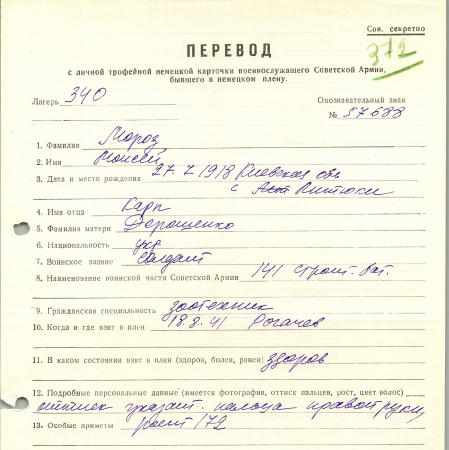 Сов. секретно
372
ПЕРЕВОД
с личной трофейной немецкой карточки военнослужащего Советской Армии,
бывшего в немецком плену.
Лагерь 340
Опознавательный знак
№ 57688
1. Фамилия Мороз
2. Имя Моисей
3. Дата и место рождения 27. 7 1918 Киевская обл
с
4. Имя отца Карп
5. Фамилия матери Дорощенко
6. Национальность укр
7. Воинское звание Солдат
8. Наименование воинской части Советской Армии 141 строит. бат.
9. Гражданская специальность зоотехник
10. Когда и где взят в плен 18. 8. 41 Рогачев
11. В каком состоянии взят в плен (здоров, болен, ранен) здоров
12. Подробные персональные данные (имеется фотография, оттиск пальцев, рост, цвет волос)
оттиск указат. пальца правой руки,
13. Особые приметы рост 172